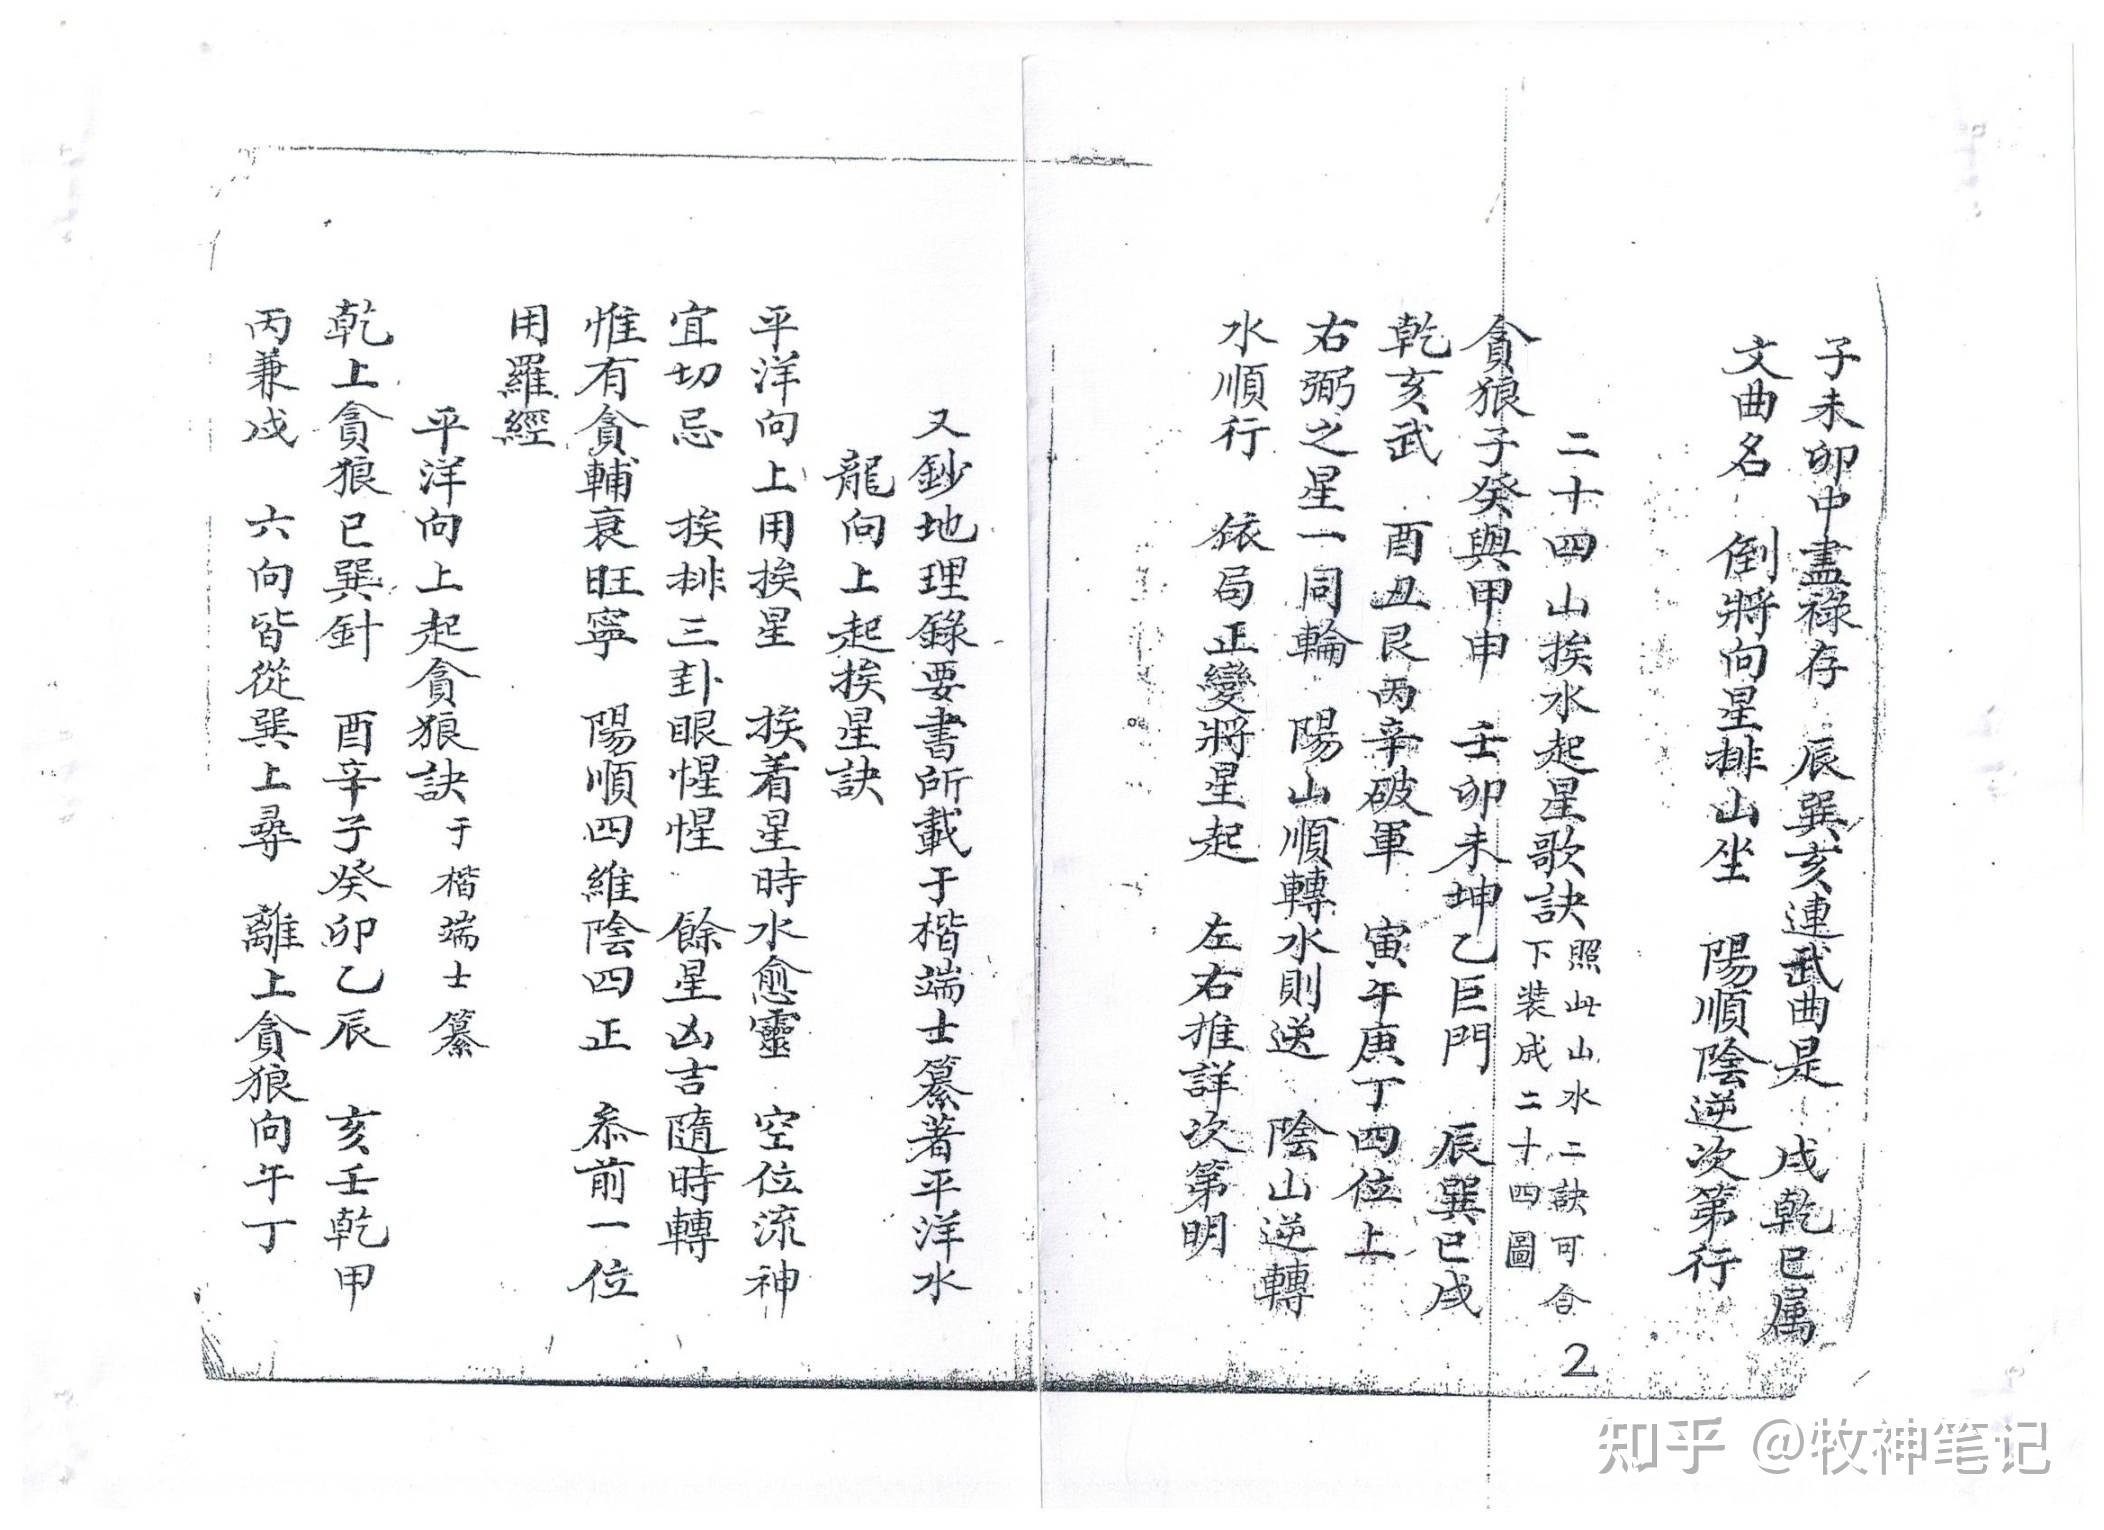 子未卯中盡祿存　辰巽亥連武曲是　戌乾巳属
文曲名　倒將向星排山坐　陽順陰逆次第行
二十四山挨水起星歌訣
照此山水二訣可合
下裝成二十四圖
貪狼子癸與甲申　壬卯未坤乙巨門　辰巽巳戌
乾亥武　酉丑艮丙辛破軍　寅午庚丁四位上
右弼之星一同輪　陽山順轉水則逆　陰山逆轉
水順行　依局正變將星起　左右推詳次第明
2
又鈔地理錄要書所載于楷端士纂著平洋水
龍向上起挨星訣
平洋向上用挨星　挨着星時水愈靈　空位流神
宜切忌　挨排三卦眼惺惺　餘星凶吉隨時轉
惟有貪輔衰旺寧　陽順四維陰四正　叅前一位
用羅經
平洋向上起貪狼訣于楷端士纂
乾上貪狼巳巽針　酉辛子癸卯乙辰　亥壬乾甲
丙兼戌　六向皆從巽上尋　離上貪狼向午丁
知乎 @牧神笔记